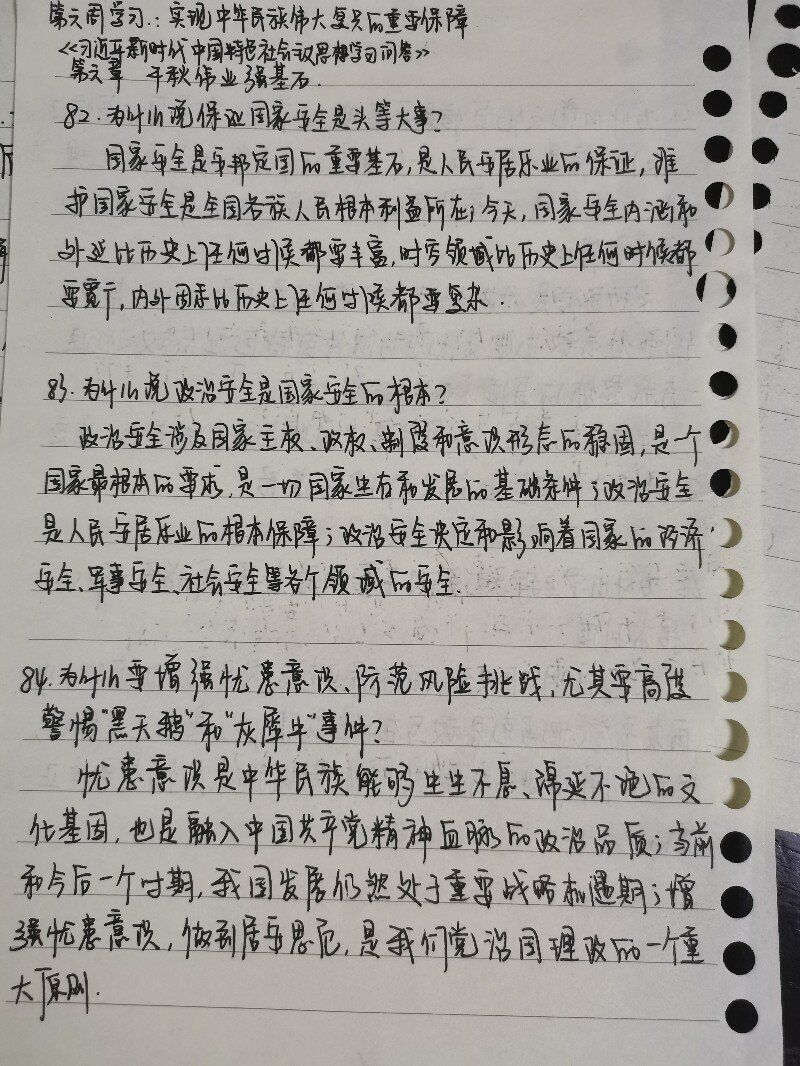 第六周学习:实现中华民族伟大复兴的重要保障
《习近平新时代中国特色社会主义思想学习问答》
第六章 千秋伟业强基石.
82.为什么说保证国家安全是头等大事?
国家安全是安邦定国的重要基石,是人民安居乐业的保证,维
护国家安全是全国各族人民根本利益所在;今天,国家安全内涵和
外延比历史上任何时候都要丰富,时空领域比历史上任何时候都
要宽广,内外因素比历史上任何时候都要复杂.
83.为什么说政治安全是国家安全的根本?
政治安全涉及国家主权、政权、制度和意识形态的稳固,是一个
国家最根本的要求,是一切国家生存和发展的基础条件;政治安全
是人民安居乐业的根本保障;政治安全决定和影响着国家的经济
安全、军事安全、社会安全等各个领域的安全.
84.为什么要增强忧患意识、防范风险挑战,尤其要高度
警惕"黑天鹅"和"灰犀牛"事件?
忧患意识是中华民族能够生生不息、绵延不绝的文
化基因,也是融入中国共产党精神血脉的政治品质;当前
和今后一个时期,我国发展仍然处于重要战略机遇期;增
强忧患意识,做到居安思危,是我们党治国理政的一个重
大原则.